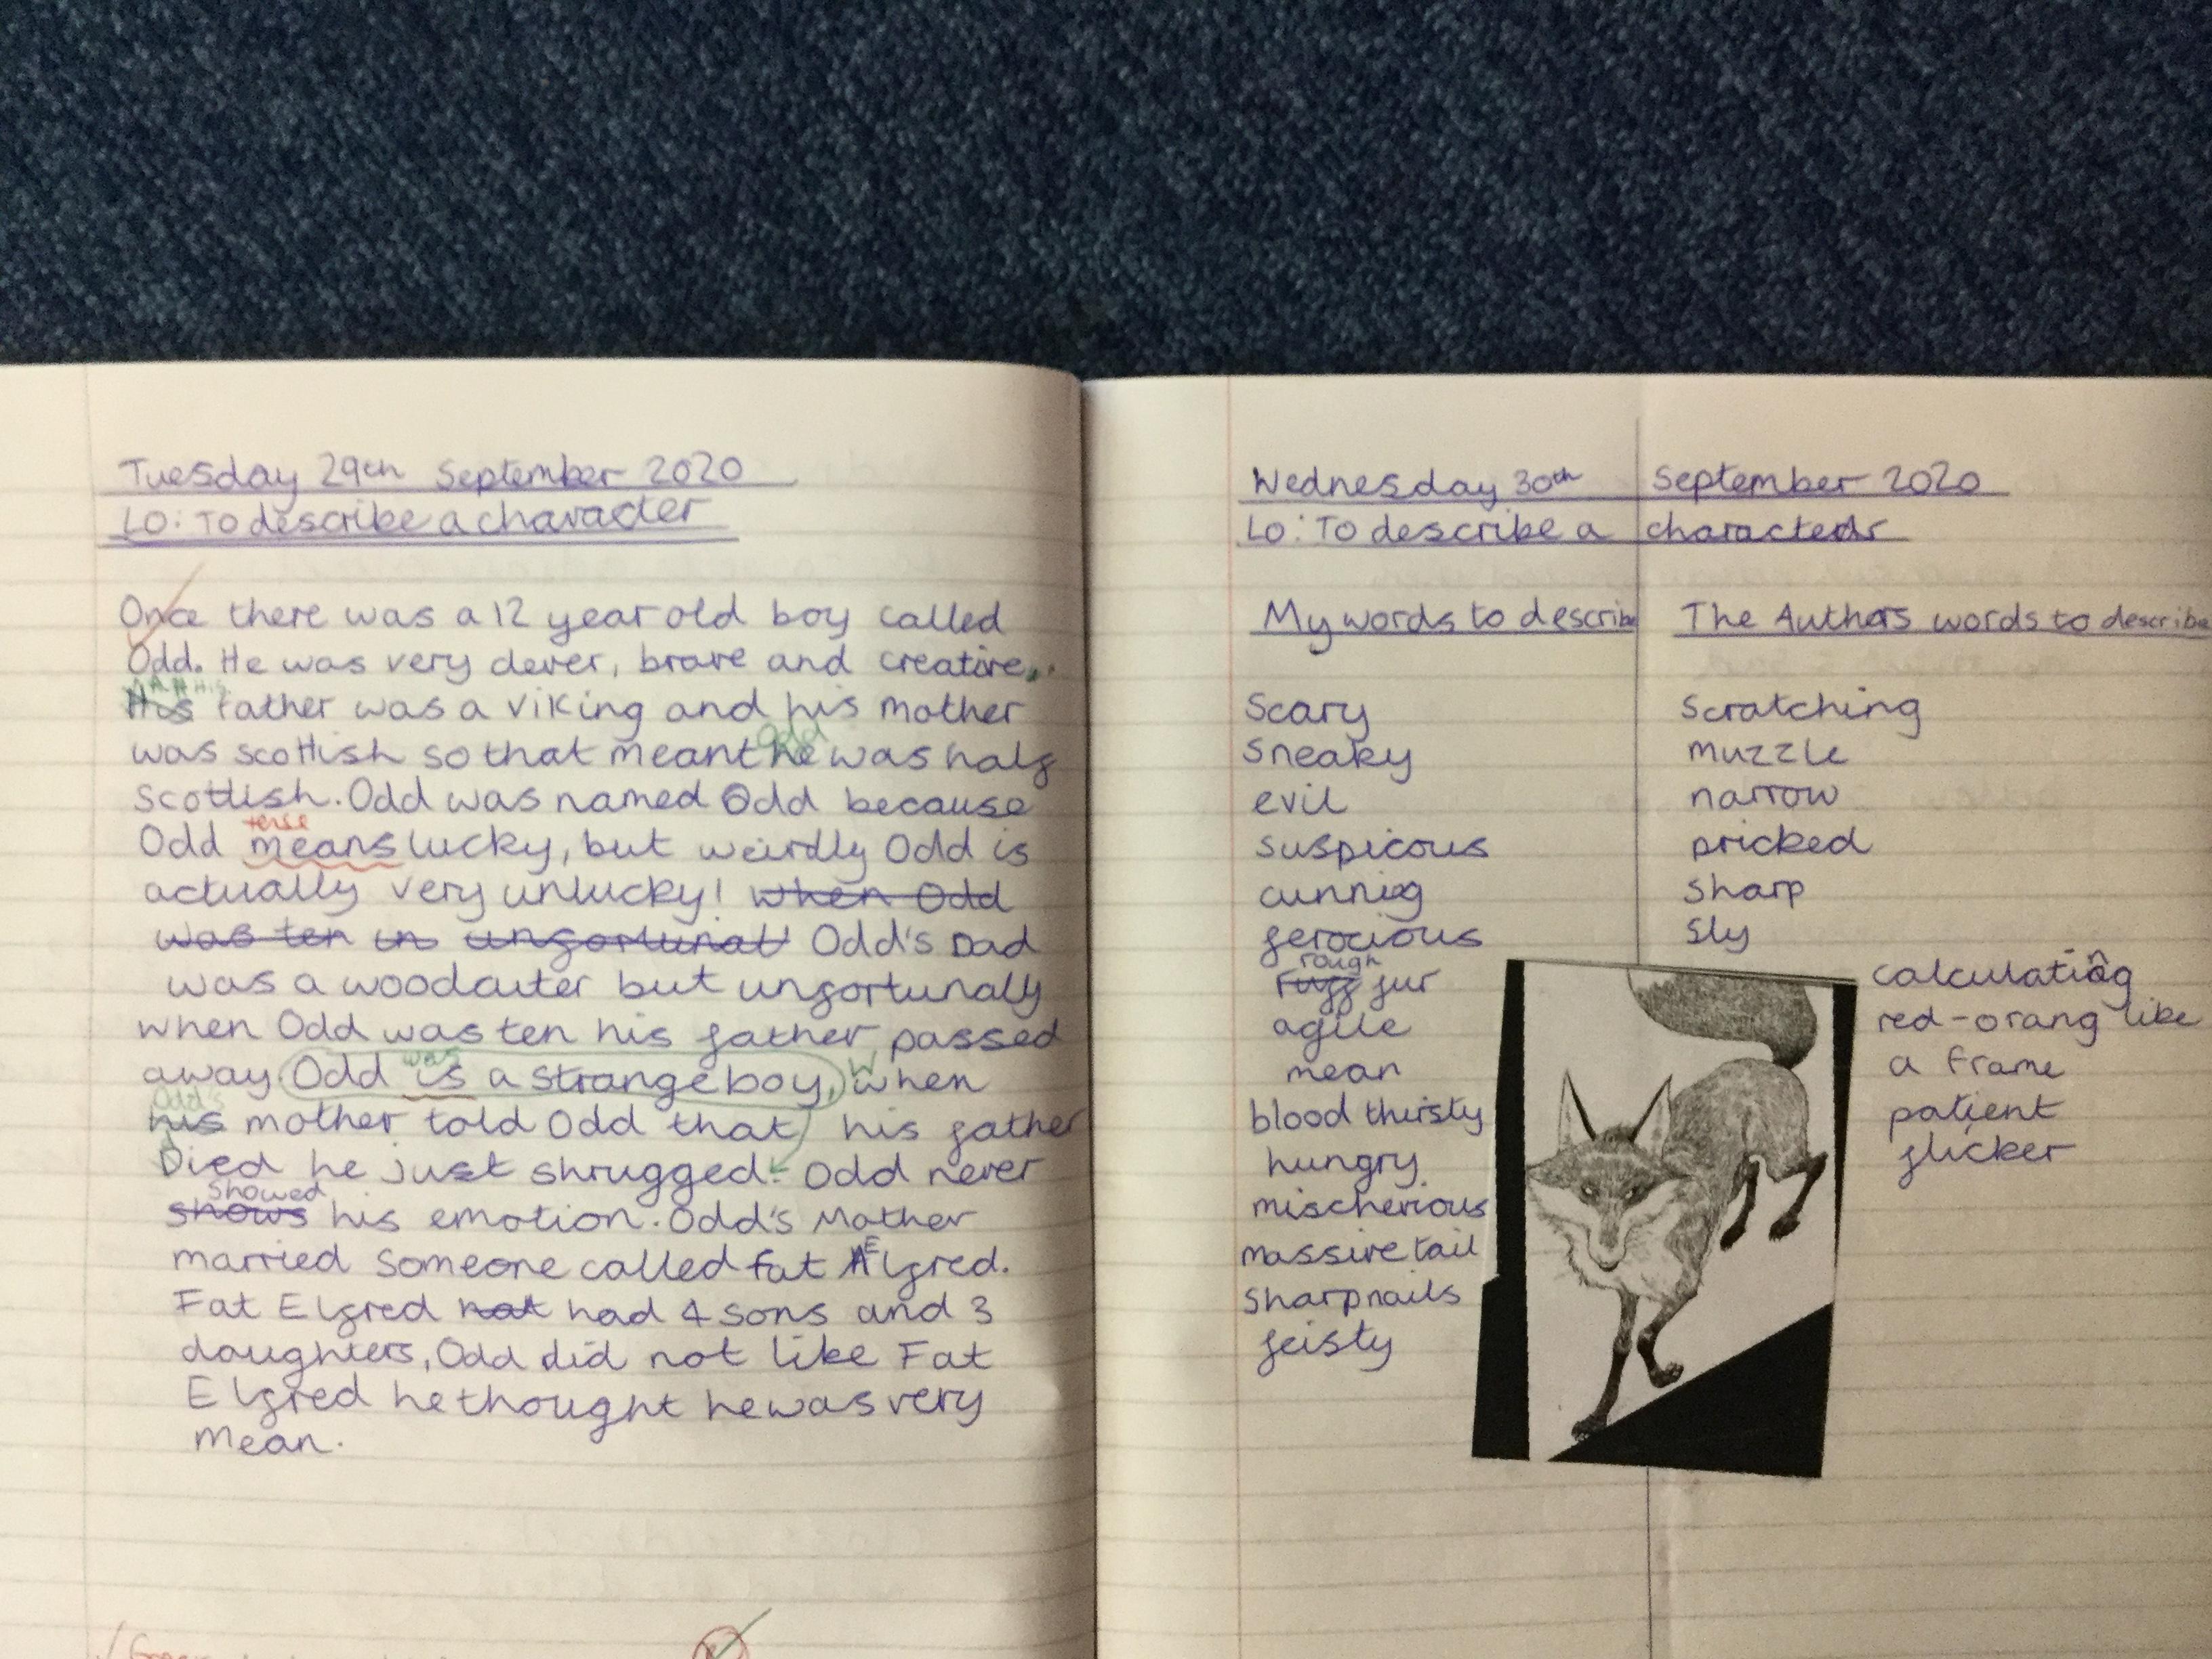 Tuesday 29th September 2020
LO: To describe a character
Once there was a 12 year old boy called
Odd. He was very clever, brave and creative.
His father was a viking and his mother
Odd
was scottish so that meant he was half
scottish. Odd was named Odd because
tense
Odd means lucky, but weirdly Odd is
actually very unlucky! when Odd
was ten in unfortunat Odd's Dad
was a woodcuter but unfortunally
when Odd was ten his father passed
was W
away Odd is a strange boy, when
Odd's
his mother told Odd that his father
Died he just shrugged. Odd never
showed
shows his emotion. Odd's Mother
E
married someone called fat Alfred.
Fat Elfred not had 4 sons and 3
daughters, Odd did not like Fat
Elfred he thought he was very
mean.
Wednesday 30th September 2020
LO: To describe a characters
My words to describe
scary
sneaky
evil
suspicous
cunnig
ferocious
rough
Ruff fur
agile
mean
blood thirsty
hungry
mischevious
massive tail
sharp nails
feisty
The Authors words to describe
scratching
muzzle
narrow
pricked
sharp
sly
calculating
red-orang like
a frame
patient
flicker